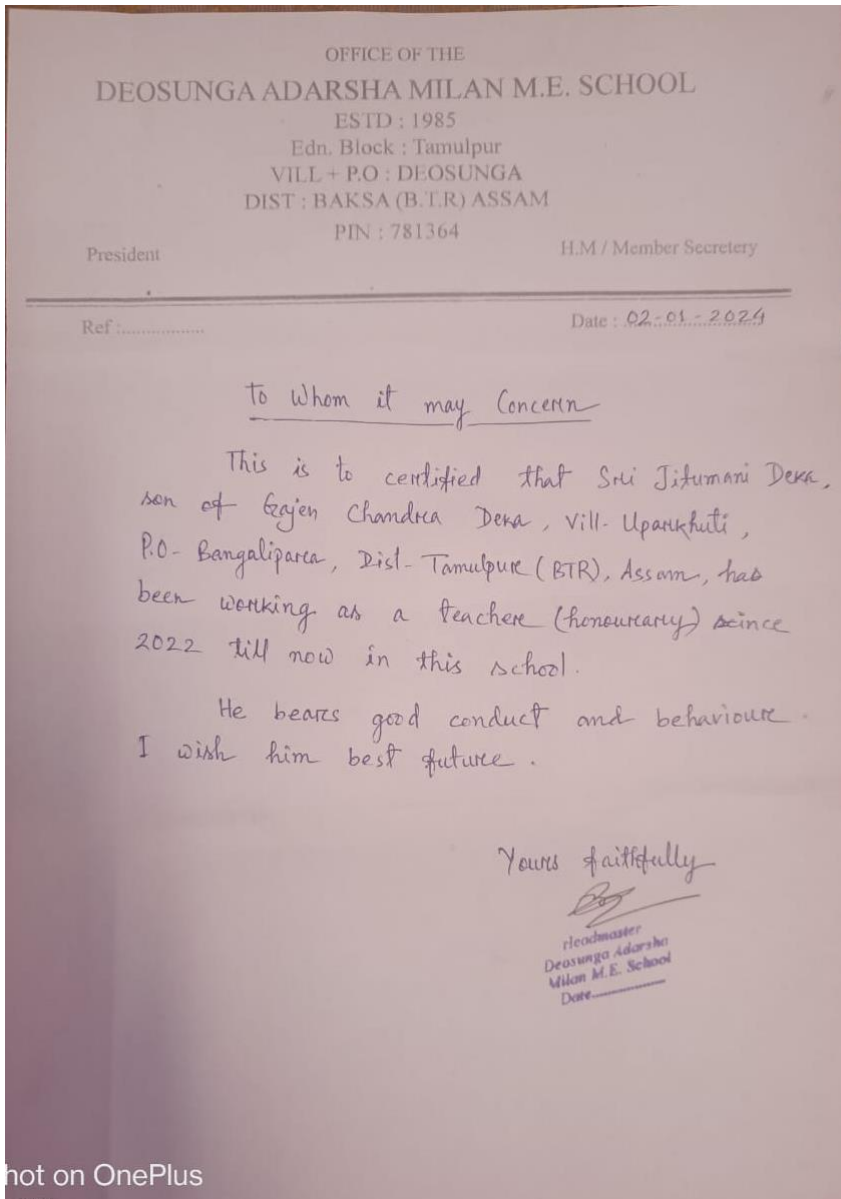 OFFICE OF THE
DEOSUNGA ADARSHA MILAN M.E. SCHOOL
ESTD : 1985
Edn. Block : Tamulpur
VILL + P.O : DEOSUNGA
DIST : BAKSA (B.T.R) ASSAM
PIN : 781364
President
H.M / Member Secretery
Ref :................
Date : 02-01-2024
To Whom it may Concern
This is to certified that Sri Jitumani Deka,
son of Gajen Chandra Deka, Vill- Uparkhuti,
P.O- Bangalipara, Dist- Tamulpur (BTR), Assam, has
been working as a teacher (honourary) since
2022 till now in this school.
He bears good conduct and behaviour.
I wish him best future.
Yours faithfully
Headmaster
Deosunga Adarsha
Milan M.E. School
Date..................
hot on OnePlus